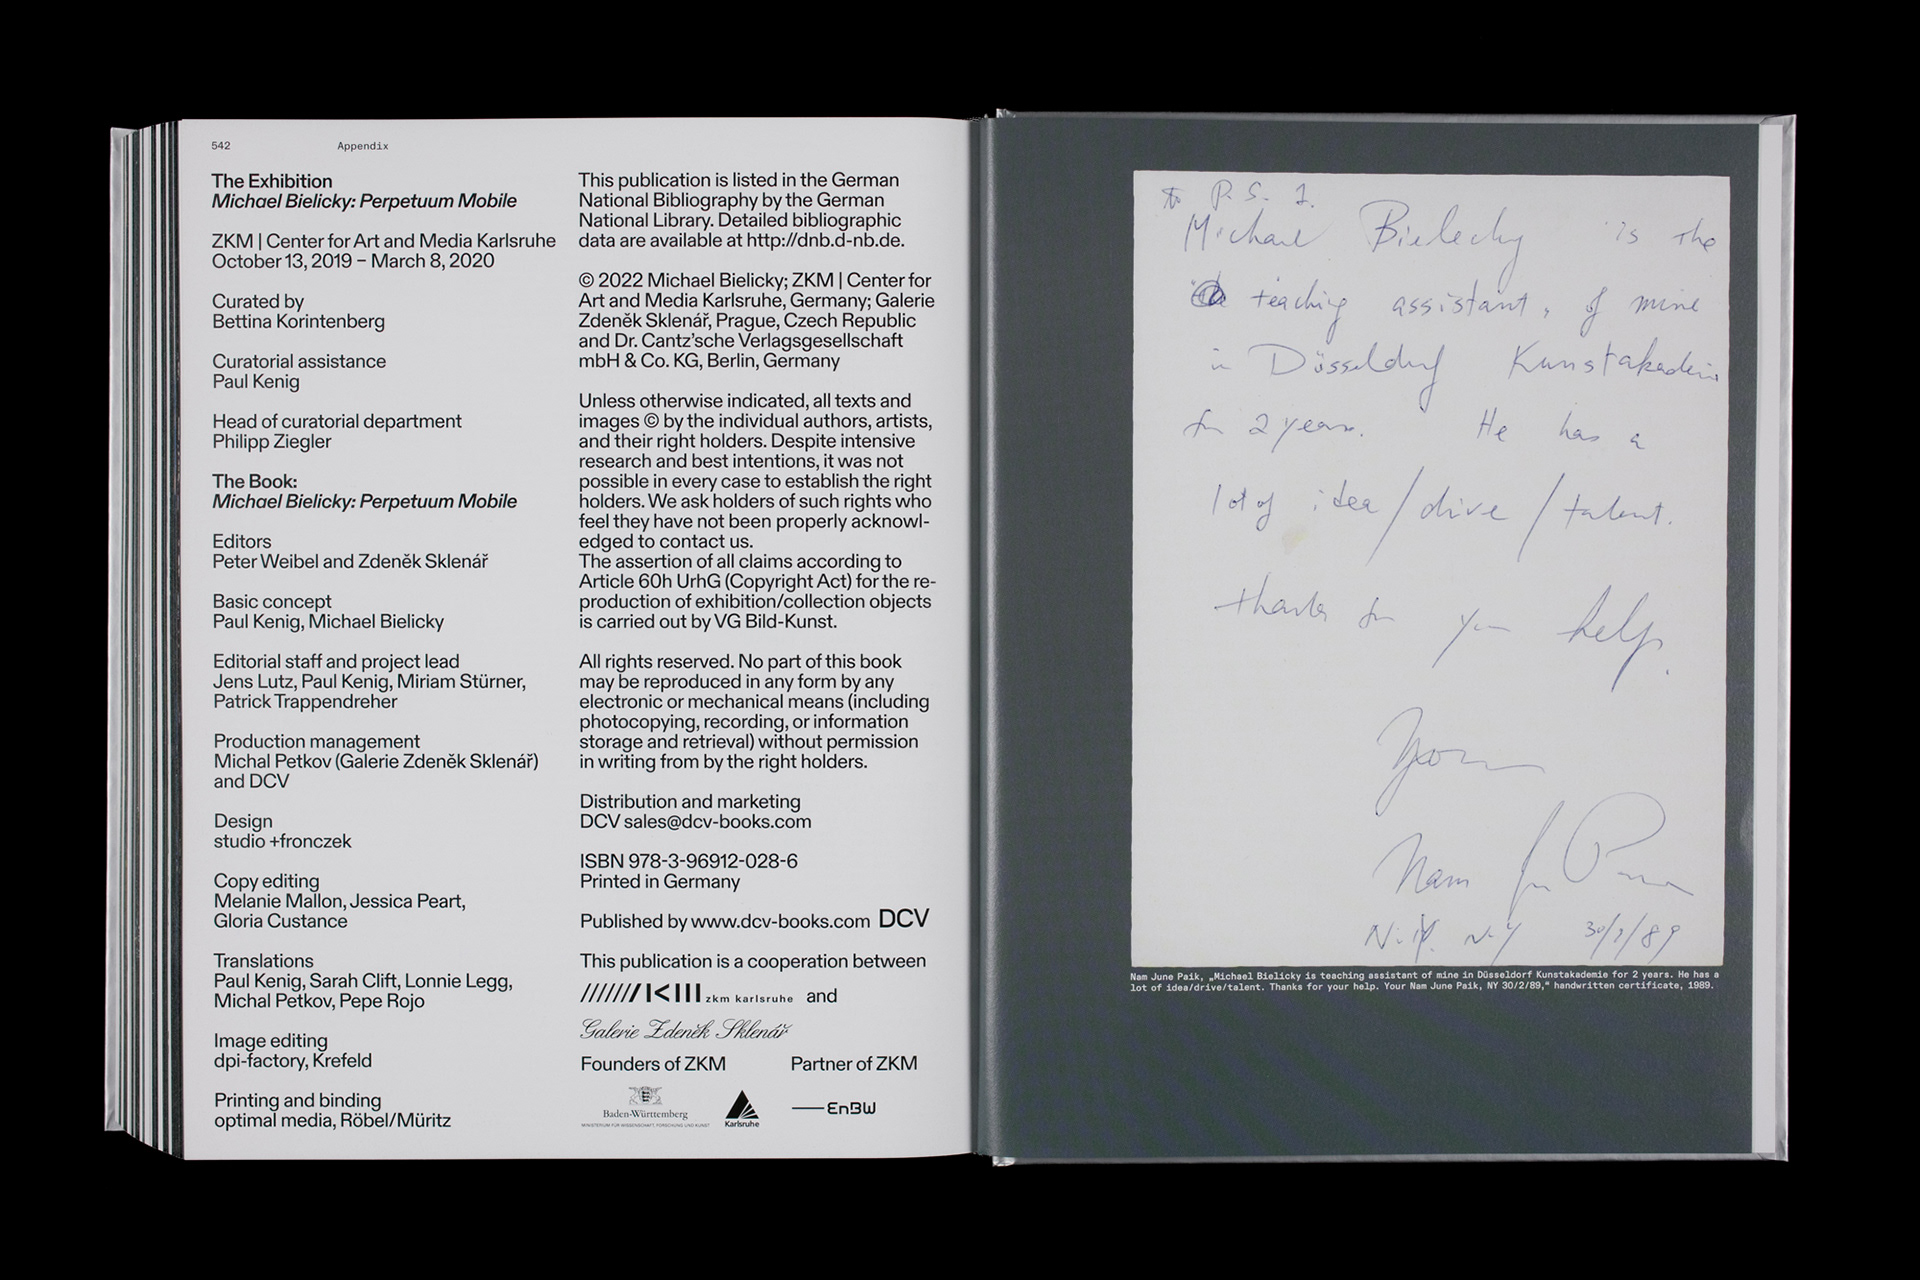 542 Appendix
The Exhibition
Michael Bielicky: Perpetuum Mobile
ZKM | Center for Art and Media Karlsruhe
October 13, 2019 – March 8, 2020
Curated by
Bettina Korintenberg
Curatorial assistance
Paul Kenig
Head of curatorial department
Philipp Ziegler
The Book:
Michael Bielicky: Perpetuum Mobile
Editors
Peter Weibel and Zdeněk Sklenář
Basic concept
Paul Kenig, Michael Bielicky
Editorial staff and project lead
Jens Lutz, Paul Kenig, Miriam Stürner,
Patrick Trappendreher
Production management
Michal Petkov (Galerie Zdeněk Sklenář)
and DCV
Design
studio +fronczek
Copy editing
Melanie Mallon, Jessica Peart,
Gloria Custance
Translations
Paul Kenig, Sarah Clift, Lonnie Legg,
Michal Petkov, Pepe Rojo
Image editing
dpi-factory, Krefeld
Printing and binding
optimal media, Röbel/Müritz
This publication is listed in the German
National Bibliography by the German
National Library. Detailed bibliographic
data are available at http://dnb.d-nb.de.
© 2022 Michael Bielicky; ZKM | Center for
Art and Media Karlsruhe, Germany; Galerie
Zdeněk Sklenář, Prague, Czech Republic
and Dr. Cantz’sche Verlagsgesellschaft
mbH & Co. KG, Berlin, Germany
Unless otherwise indicated, all texts and
images © by the individual authors, artists,
and their right holders. Despite intensive
research and best intentions, it was not
possible in every case to establish the right
holders. We ask holders of such rights who
feel they have not been properly acknowl-
edged to contact us.
The assertion of all claims according to
Article 60h UrhG (Copyright Act) for the re-
production of exhibition/collection objects
is carried out by VG Bild-Kunst.
All rights reserved. No part of this book
may be reproduced in any form by any
electronic or mechanical means (including
photocopying, recording, or information
storage and retrieval) without permission
in writing from by the right holders.
Distribution and marketing
DCV sales@dcv-books.com
ISBN 978-3-96912-028-6
Printed in Germany
Published by www.dcv-books.com DCV
This publication is a cooperation between
zkm karlsruhe and
Galerie Zdeněk Sklenář
Founders of ZKM Partner of ZKM
Baden-Württemberg
MINISTERIUM FÜR WISSENSCHAFT, FORSCHUNG UND KUNST
Karlsruhe
EnBW
to P. S. 1.
Michael Bielecky is the
teaching assistant, of mine
in Düsseldorf Kunstakademie
for 2 years. He has a
lot of idea / drive / talent.
thanks for your help.
Your
Nam June Paik
N.Y. N.Y 30/2/89
Nam June Paik, „Michael Bielicky is teaching assistant of mine in Düsseldorf Kunstakademie for 2 years. He has a
lot of idea/drive/talent. Thanks for your help. Your Nam June Paik, NY 30/2/89,“ handwritten certificate, 1989.